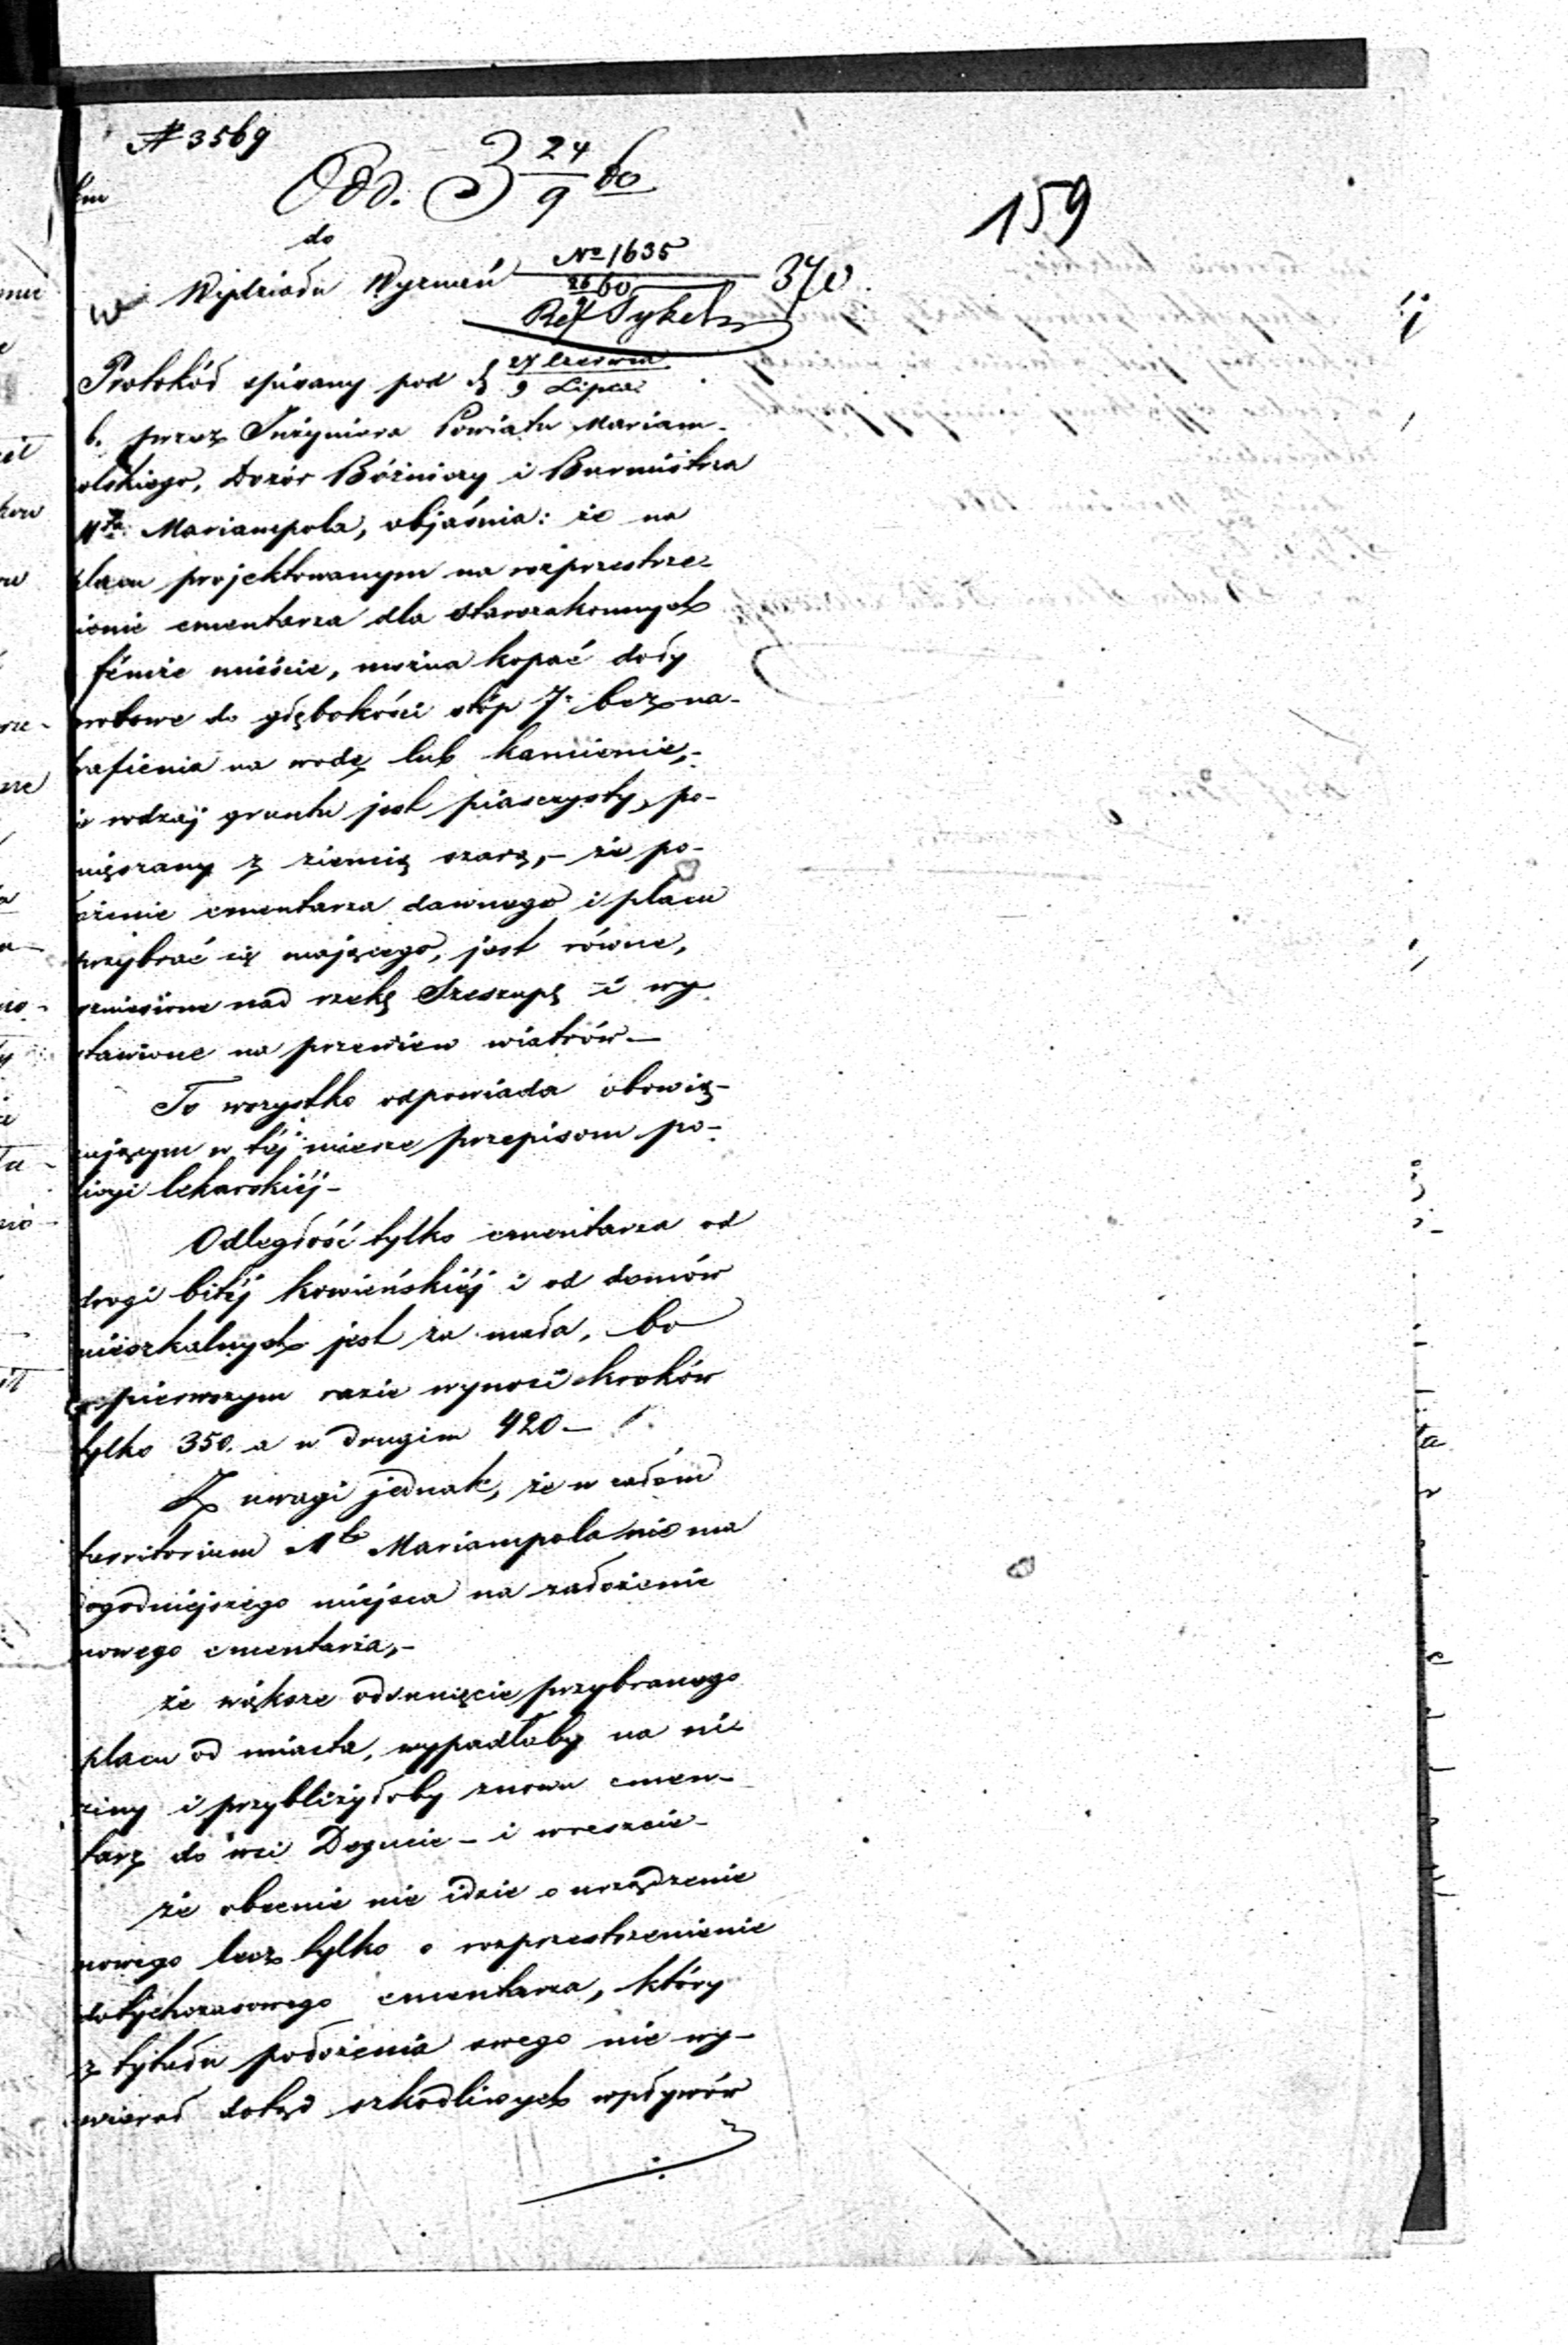 № 3569
Odd. 3 24/9 60
159
do
Wydziału Wyznań
№ 1635
26/9 60
370
Ref Tykel
Protokół spisany pod d 27 Czerwca / 9 Lipca
b. przez Inżyniera Powiatu Mariam-
polskiego, Dozór Bóżniczy i Burmistrza
Mta Mariampola, objaśnia: że na
placu projektowanym na rozprzestrze-
nienie cmentarza dla starozakonnych
témże mieście, można kopać doły
grobowe do głębokości stóp 7. bez na-
trafienia na wodę lub kamienie,-
że rodzaj gruntu jest piasczysty, po-
mięszany z ziemią szarą,- że po-
łożenie cmentarza dawnego i placu
przybrać się mającego, jest równe,
wzniesione nad rzekę Szeszupę i wy-
stawione na przewiew wiatrów —
To wszystko odpowiada obowią-
zującym w téj mierze przepisom po-
licyi lekarskiéj -
Odległość tylko cmentarza od
drogi bitéj kowieńskiéj i od domów
mieszkalnych jest za mała, bo
w pierwszym razie wynosi kroków
tylko 350. a w drugim 420 —
Z uwagi jednak, że w całém
territorium Mta Mariampola nie ma
dogodniejszego miejsca na założenie
nowego cmentarza,-
że większe odsunięcie przybranego
placu od miasta, wypadłoby na ni-
ziny i przybliżyłoby znowu cmen-
tarz do wsi Degucie - i wreszcie -
że obecnie nie idzie o urządzenie
nowego lecz tylko o rozprzestrzenienie
dotychczasowego cmentarza, który
z tytułu położenia swego nie wy-
wierał dotąd szkodliwych wpływów